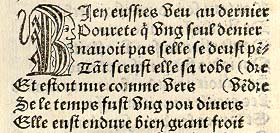 Bien eussies veu au dernier
Pourete q̃ ung seul denier
Nauoit pas selle se deust pẽ
Tãt sceust elle sa robe (dre
Et estoit nue comme vers (vẽdre
Se le temps fust ung pou divers
Elle eust endure bien grant froit